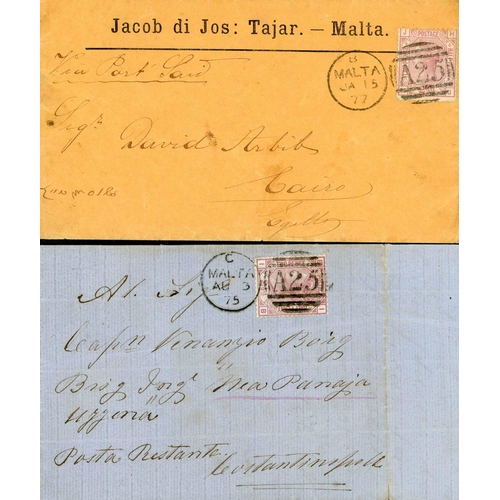 Jacob di Jos: Tajar. — Malta.
Via Port Said
B
MALTA
JA 15
77
A25
POSTAGE
Sigr
David Arbib
Cairo
Egitto
C
MALTA
AU 3
75
A25
Al Sig
Capn Venanzio Borg
Brig
Posta Restante
Costantinopoli